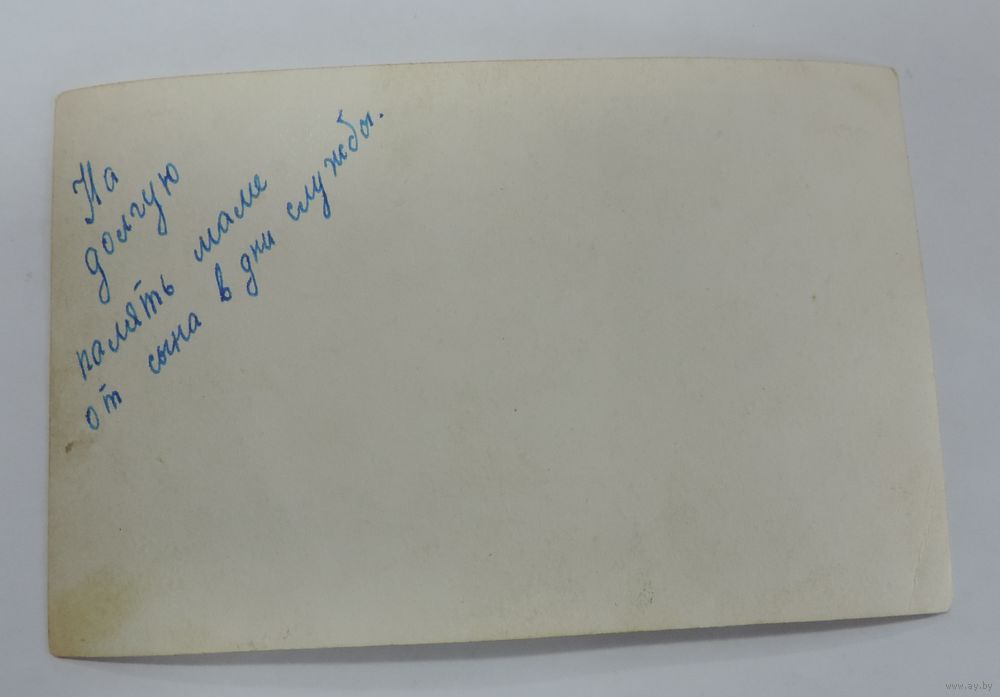 На
долгую
память маме
от сына в дни службы.
www.ay.by